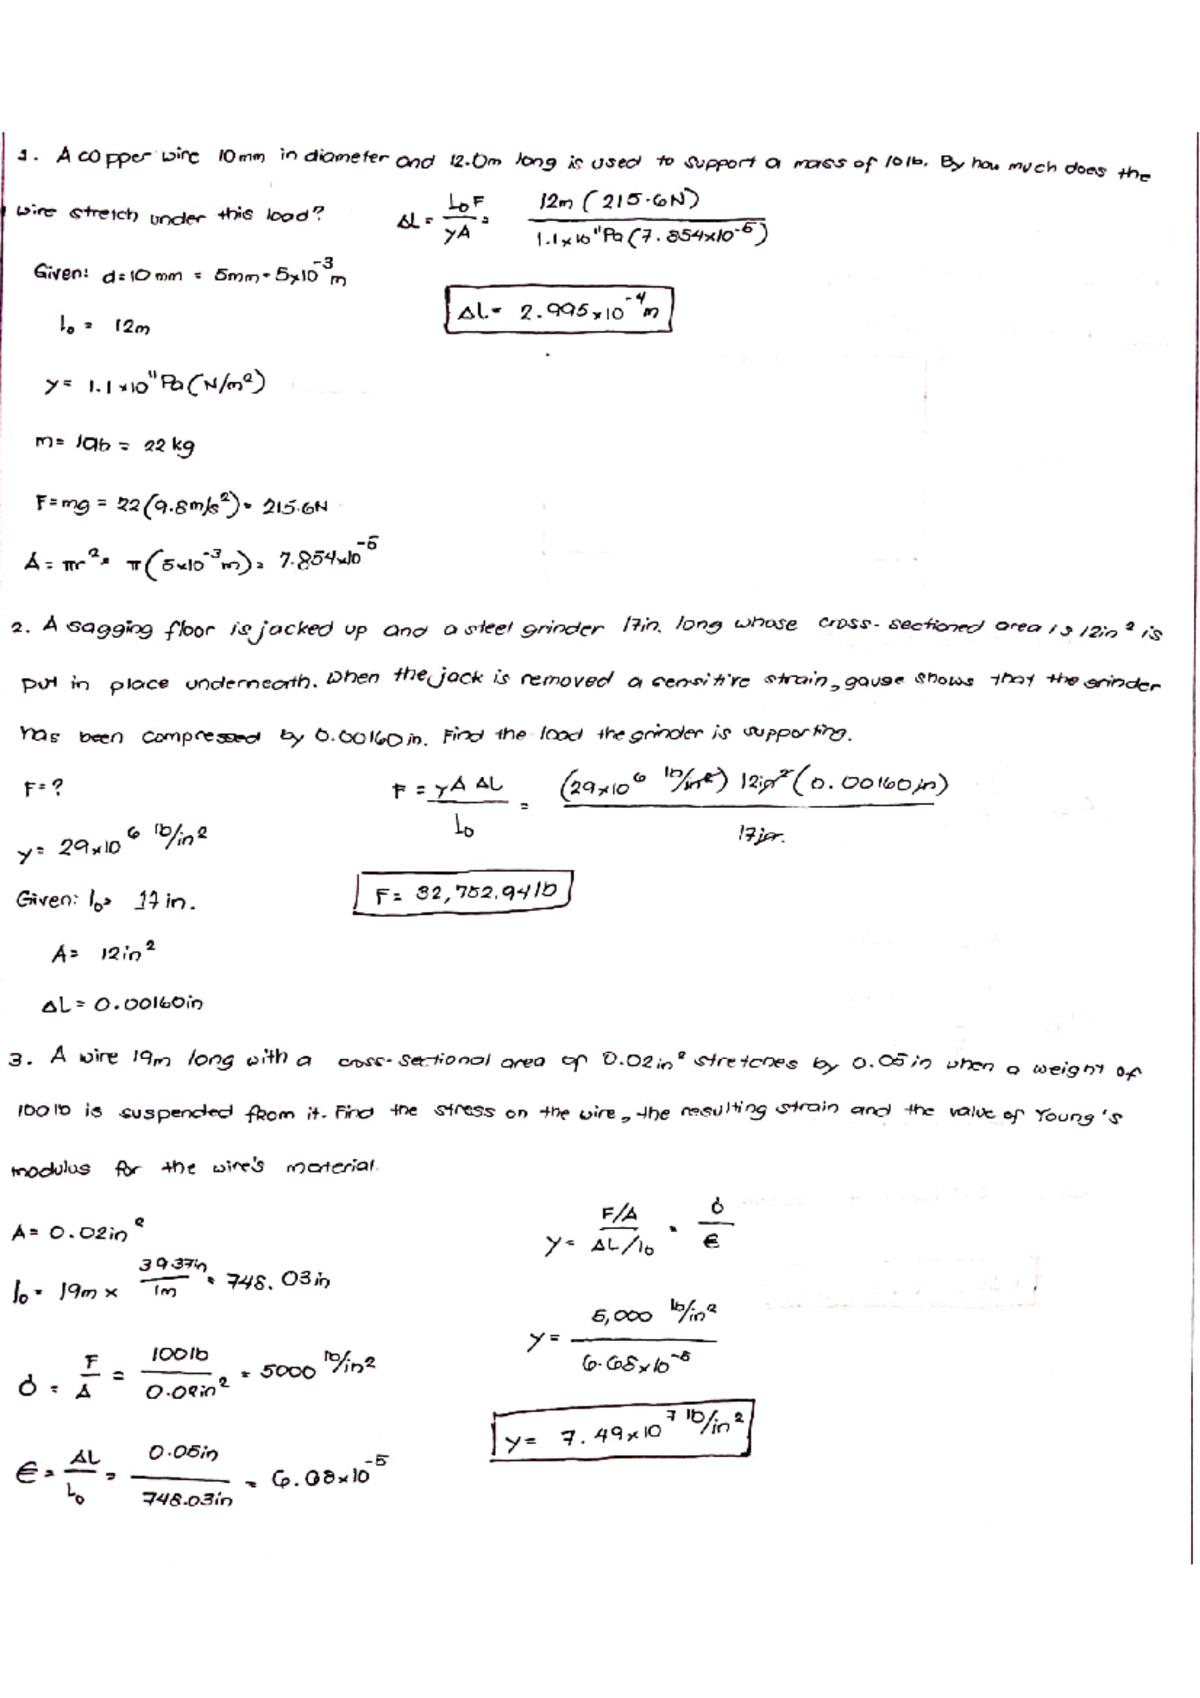 1. A copper wire 10mm in diameter and 12.0m long is used to support a mass of 10lb. By how much does the
wire stretch under this load?
ΔL = L₀F / yA = 12m (215.6N) / 1.1x10¹¹Pa (7.854x10⁻⁵)
Given: d=10mm = 5mm = 5x10⁻³m
ΔL = 2.995x10⁻⁴m
l₀ = 12m
y = 1.1x10¹¹Pa (N/m²)
m = = 22 kg
F=mg = 22(9.8m/s²) = 215.6N
A = πr² = π(5x10⁻³m) = 7.854x10⁻⁵
2. A sagging floor is jacked up and a steel grinder 17in. long whose cross-sectioned area is 12in² is
put in place underneath. When the jack is removed a sensitive strain, gauge shows that the grinder
has been compressed by 0.00160in. Find the load the grinder is supporting.
F=?
F = yA ΔL / L₀ = (29x10⁶ lb/in²) 12in² (0.00160in) / 17in.
y = 29x10⁶ lb/in²
Given: l₀ = 17in.
F = 32,752.94lb
A = 12in²
ΔL = 0.00160in
3. A wire 19m long with a cross-sectional area of 0.02in² stretches by 0.05in when a weight of
100lb is suspended from it. Find the stress on the wire, the resulting strain and the value of Young's
modulus for the wire's material.
A = 0.02in²
y = F/A / ΔL/l₀ = σ / ε
l₀ = 19m x 39.37in / 1m = 748.03in
y = 5,000 lb/in² / 6.68x10⁻⁵
σ = F / A = 100lb / 0.02in² = 5000 lb/in²
y = 7.49x10⁷ lb/in²
ε = ΔL / L₀ = 0.05in / 748.03in = 6.68x10⁻⁵